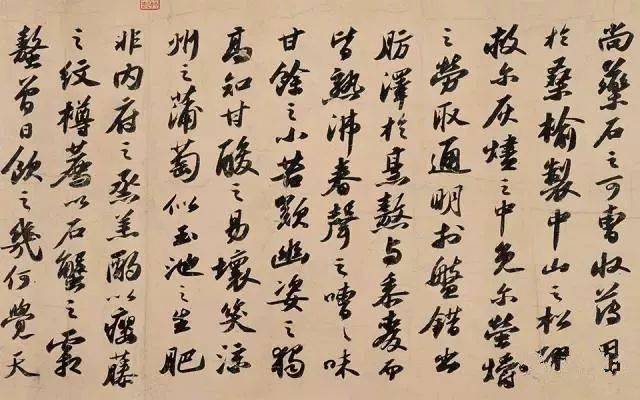 尚藥石之可曹收薄用
於桑榆製中山之松醪
救尔灰燼之中免尔螢爝
之勞取通明於盤錯出
肪澤於烹熬与黍麥而
皆熟沸舂聲之嘈々味
甘餘之小苦歎幽姿之獨
高知甘酸之易壞笑涼
州之蒲萄似玉池之生肥
非内府之烝羔酌以癭藤
之紋樽薦以石蟹之霜
螯曾日飲之幾何覺天